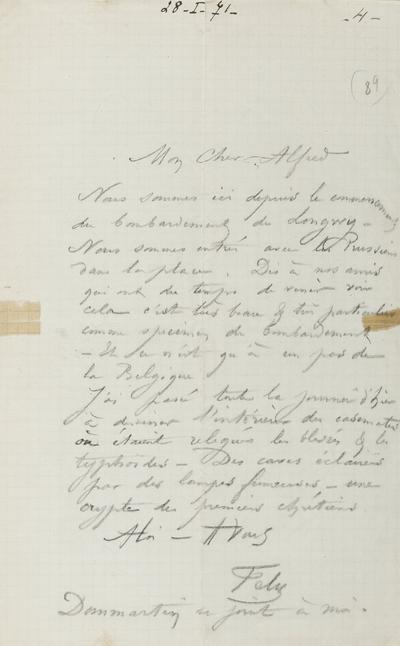 28-I-71-
-4-
(89)
Mon Cher Alfred
Nous sommes ici depuis le commencement
du bombardement de Longwy -
Nous sommes entrés avec les Prussiens
dans la place. Dis à nos amis
qui ont du temps de venir voir
cela c'est très beau & très particulier
comme specimen de bombardement
- Et ce n'est qu'à un pas de
la Belgique
J'ai passé toute la journée d'hier
à dessiner l'intérieur des casemates
où étaient relégués les blessés & les
typhoïdes - Des caves éclairées
par des lampes fumeuses - une
crypte des premiers chrétiens
A toi - A Vous
Fély
Dommartin se joint à moi.